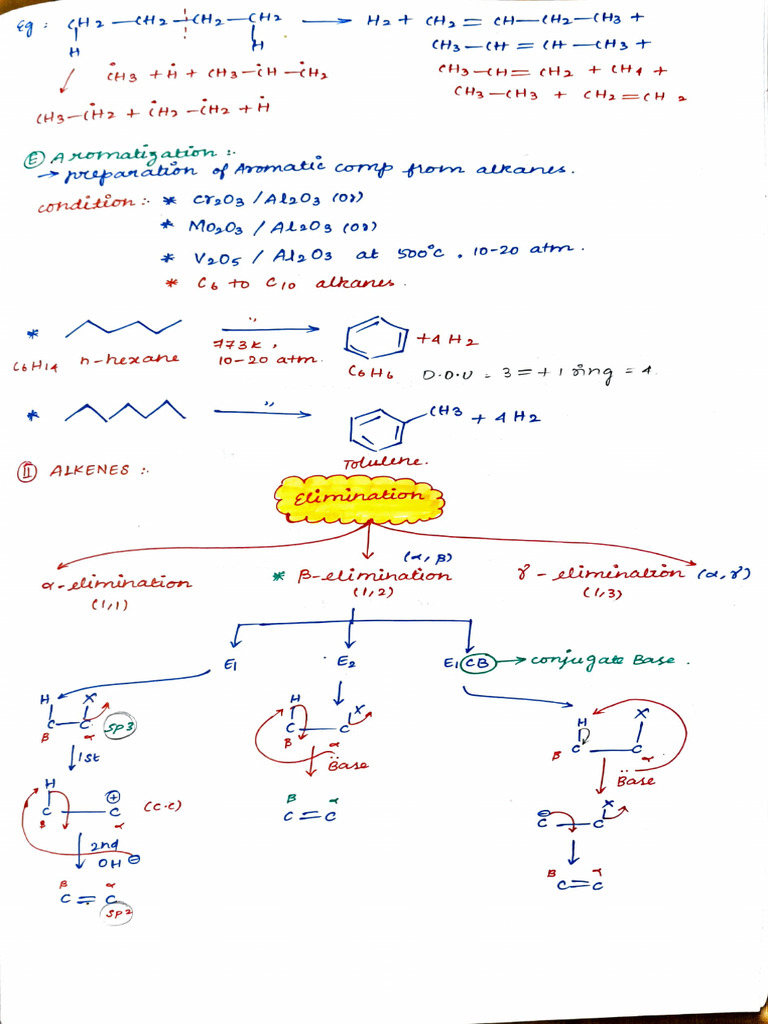 Eg : CH2 — CH2 — CH2 — CH2 ⟶ H2 + CH2 = CH — CH2 — CH3 +
H H
CH3 — CH = CH — CH3 +
ĊH3 + Ḣ + CH3 — ĊH — ĊH2
CH3 — CH = CH2 + CH4 +
CH3 — CH3 + CH2 = CH2
CH3 — ĊH2 + ĊH2 — ĊH2 + Ḣ
Ⓔ Aromatization :.
→ preparation of Aromatic comp from alkanes.
condition :. * Cr2O3 / Al2O3 (or)
* Mo2O3 / Al2O3 (or)
* V2O5 / Al2O3 at 500°c , 10-20 atm.
* C6 to C10 alkanes.
* ,, ⟶ + 4 H2
C6H14 n-hexane 773K , 10-20 atm. C6H6 D.O.U = 3 = + 1 ring = 4
* ,, ⟶ CH3 + 4 H2
Tolulene.
Ⅱ ALKENES :.
Elimination
(α, β)
α-elimination * β-elimination γ - elimination (α, γ)
(1,1) (1,2) (1,3)
E1 E2 E1 CB → conjugate Base .
H X
C — C SP3
β α
↓ 1st
H ⊕
C — C (C.C)
β α
↓ 2nd
OH ⊖
β α
C = C
SP2
H X
C — C
β α
↓ Base
β α
C = C
H X
C — C
β α
↓ Base
⊖ X
C — C
↓
β α
C = C